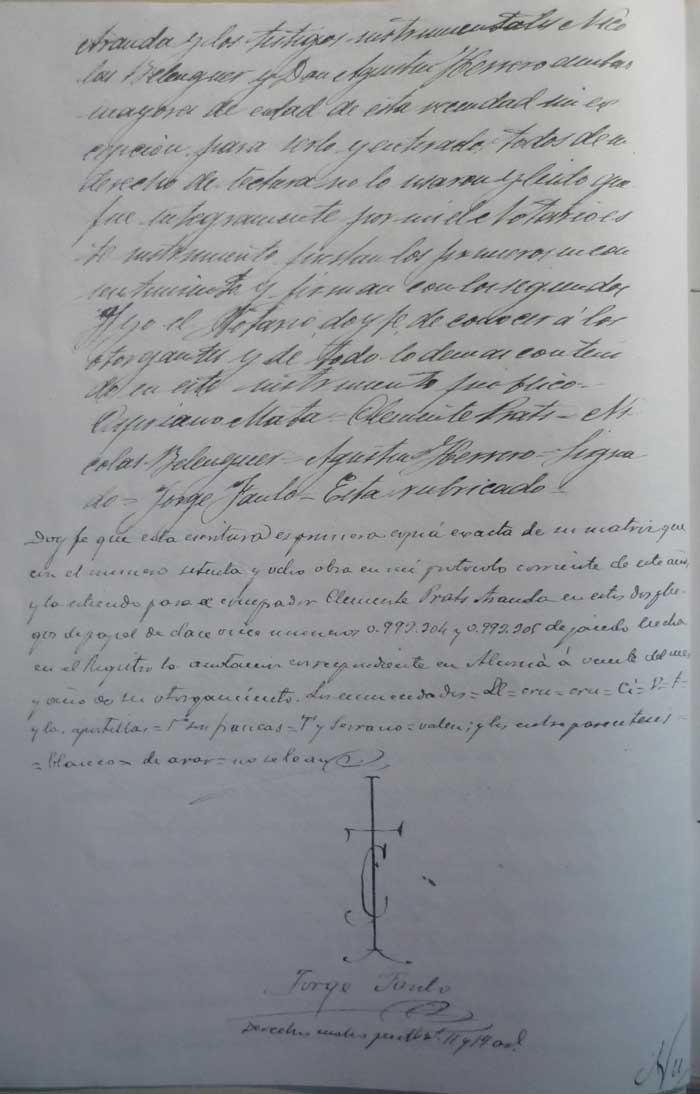 Aranda y los testigos instrumentales Nico
las Belenguer y Don Agustin Herrero ambos
mayores de edad de esta vecindad sin es
cepcion para serlo y enterados todos de su
derecho de lectura no lo usaron y leido que
fue integramente por mi el Notario es
te instrumento prestan los primeros su con
sentimiento y firman con los segundos
Y yo el Notario, doy fe de conocer á los
otorgantes y de todo lo demas conteni
do en este instrumento publico=
Cipriano Mata= Clemente Prats= Ni
colas Belenguer= Agustin Herrero= Signa
do= Jorge Jaulo= Esta rubricado=
Doy fe que esta escritura es primera copia exacta de su matriz que
con el numero setenta y ocho obra en mi protocolo corriente de este año,
y la estiendo para el comprador Clemente Prats Aranda en estos dos plie-
gos de papel de clase once numeros 0.992.204 y 0.992.205 dejando hecha
en el Registro la anotacion correspondiente en Alcañiz á veinte del mes
y año de su otorgamiento. Los enmendados= Ll= cru= cru= Ci= V= t=
y las apostillas= francas= T y Serrano= valen; y los entre parentesis=
= blanco= de arar= no se lean
Jorge Jaulo
Derechos
Nu